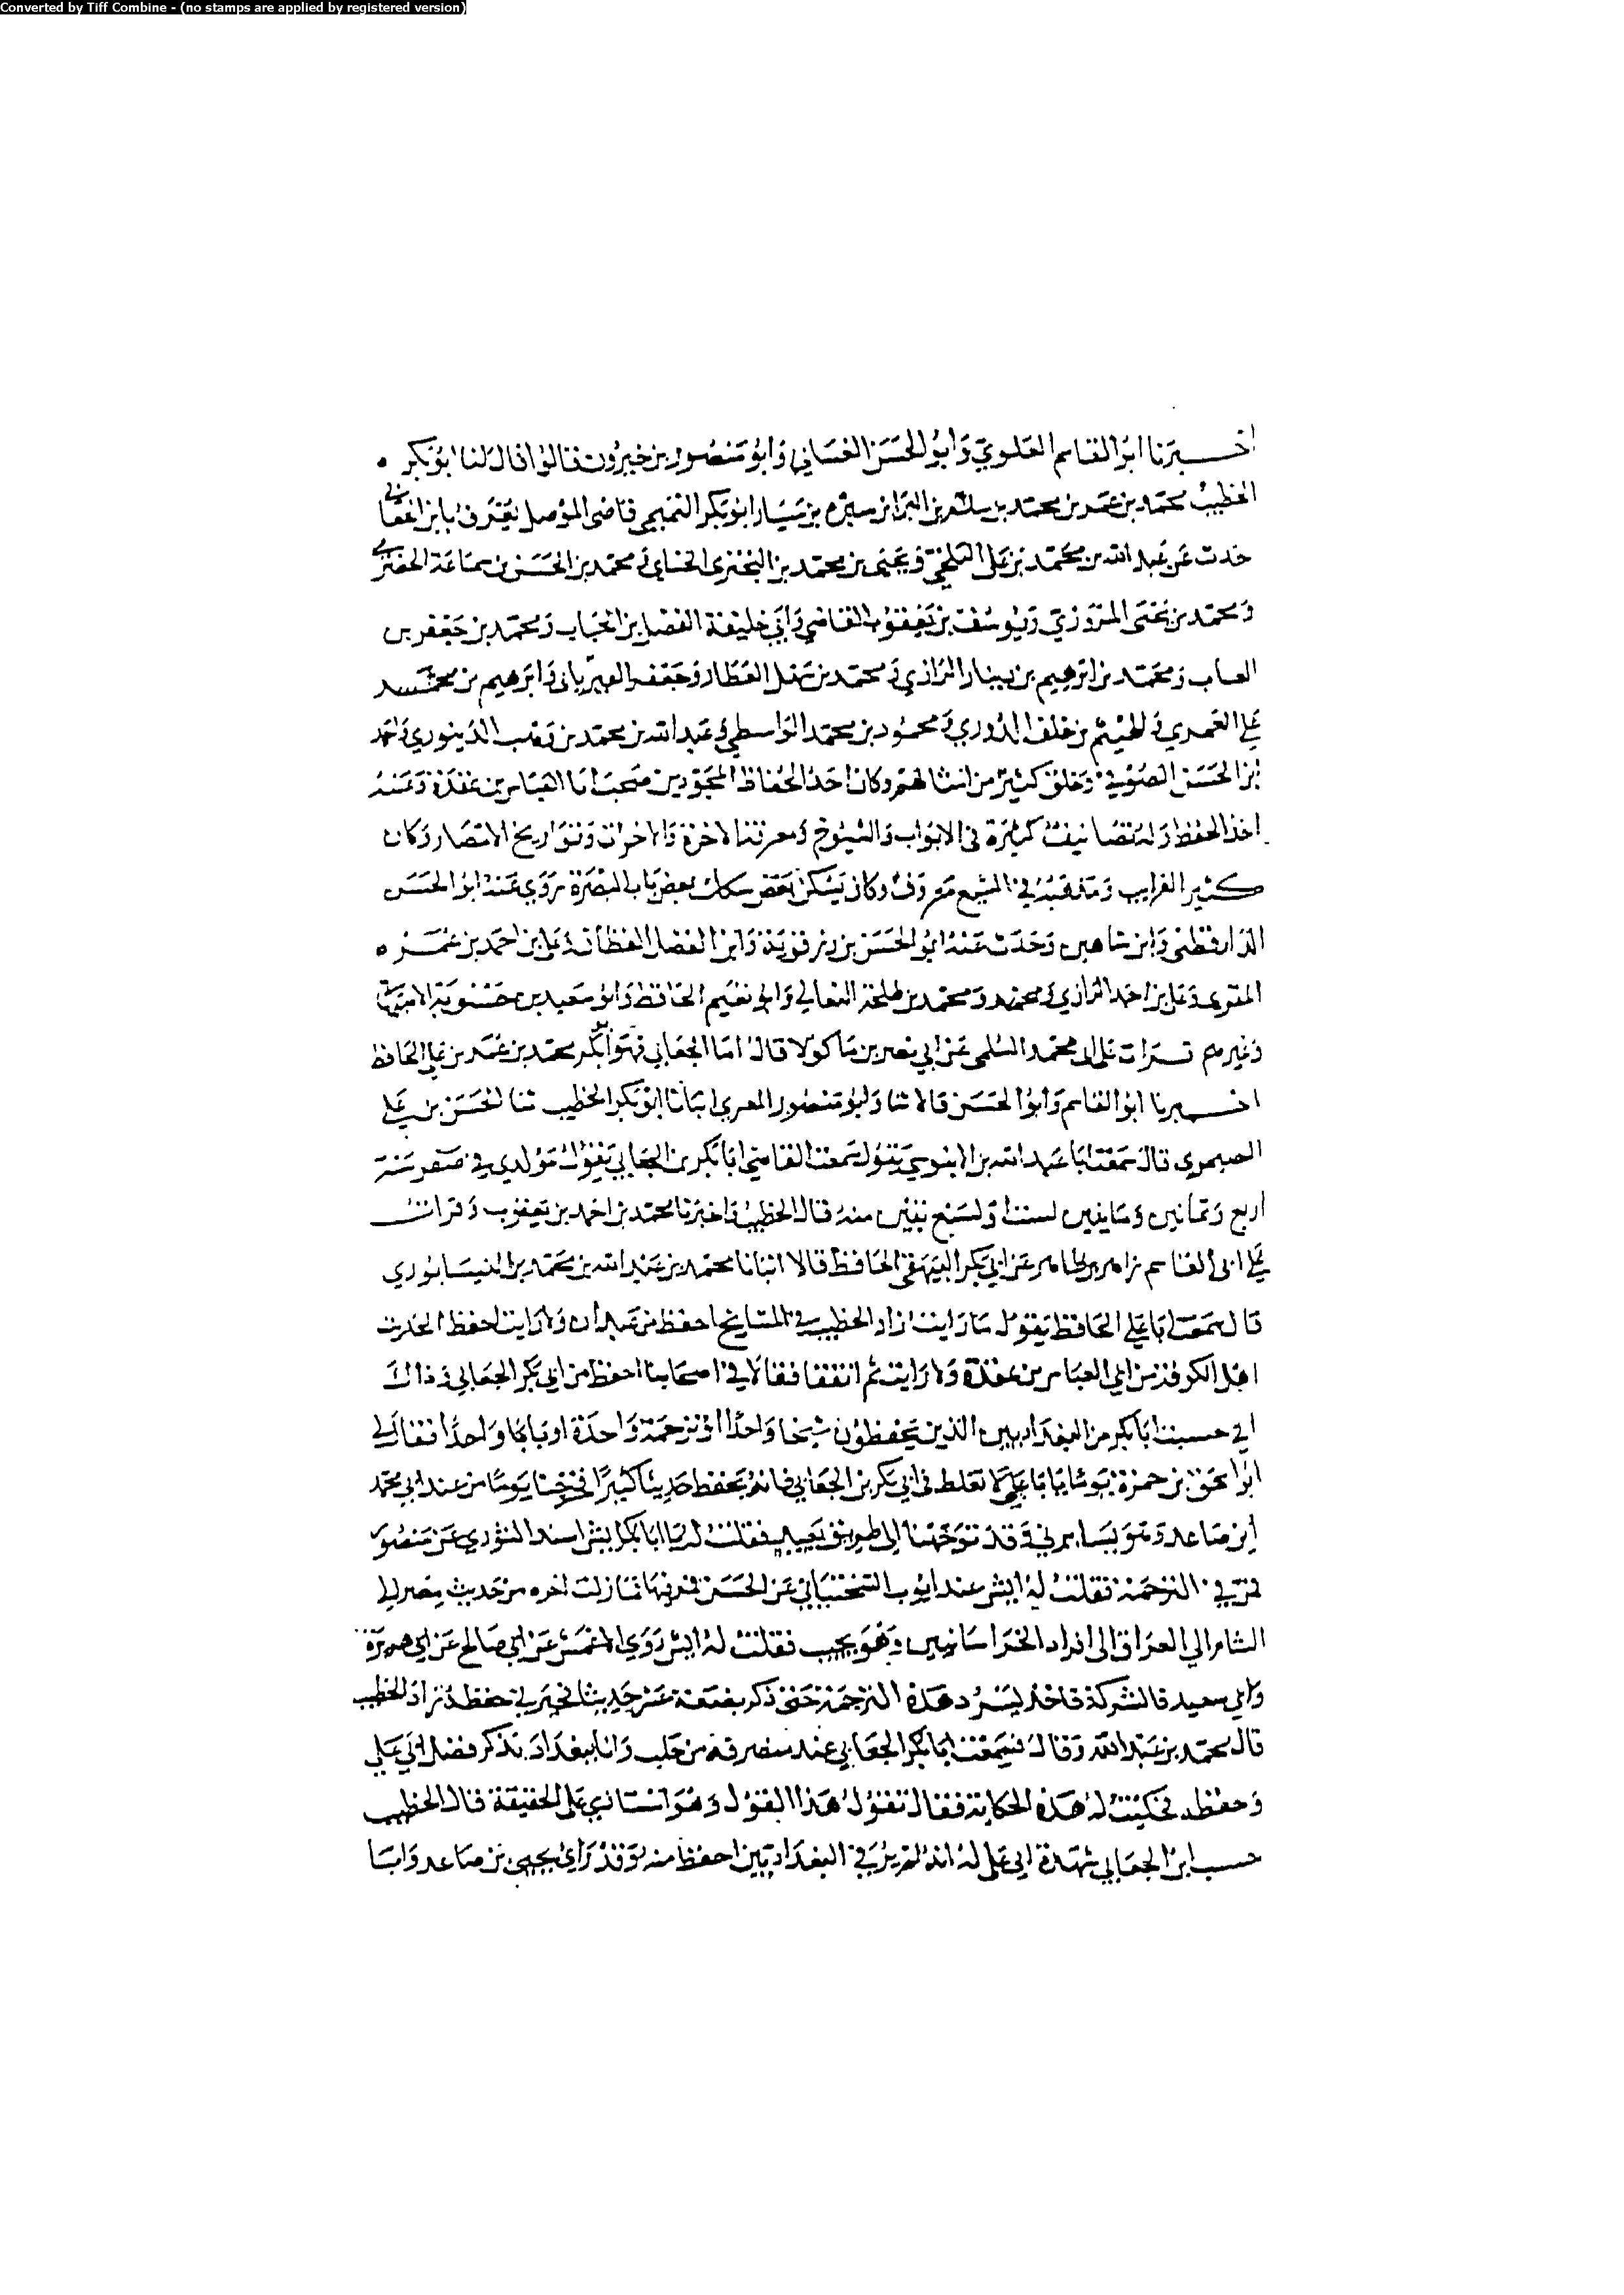 Converted by Tiff Combine - (no stamps are applied by registered version)
اخبرنا ابو القاسم العلوي وابو الحسن الغساني وابو منصور بن خيرون قالوا قال لنا ابو بكر
الخطيب محمد بن عمر بن محمد بن سلم بن البرا بن سبرة بن سيار ابو بكر التميمي قاضي الموصل يعرف بابن الجعابي
حدث عن عبد الله بن محمد بن علي البلخي ويحيى بن محمد بن البختري الحناي ومحمد بن الحسن بن سماعة الحضرمي
ومحمد بن يحيى المروزي ويوسف بن يعقوب القاضي وابي خليفة الفضل بن الحباب ومحمد بن جعفر بن
العاب ومحمد بن ابرهيم بن الرازي ومحمد بن سهل العطار وجعفر الفريابي وابرهيم بن محمد
علي العمري والهيثم بن خلف الدوري ومحمود بن محمد الواسطي وعبد الله بن محمد بن وهب الدينوري واحمد
بن الحسن الصوفي وخلق كثير من امثالهم وكان احد الحفاظ المجودين صحب ابا العباس بن عقدة وعنه
اخذ الحفظ وله تصانيف كثيرة في الابواب والشيوخ ومعرفة الاخوة والاخوات وتواريخ الامصار وكان
كثير الغرايب ومذهبه في التشيع معروف وكان يسكن بعض سكك باب البصرة روى عنه ابو الحسن
الدارقطني وابن شاهين وحدث عنه ابو الحسن بن رزقويه وابن الفضل القطان وعلي بن احمد بن عمر
المقري وعلي بن احمد الرازي ومحمد بن طلحة النعالي وابو نعيم الحافظ وابو سعيد بن حسنويه الاصبهاني
وغيرهم قرات على ابي محمد السلمي عن ابي نصر بن ماكولا قال اما الجعابي فهو ابو بكر محمد بن عمر بن علي الحافظ
اخبرنا ابو القاسم وابو الحسن قالا ثنا وابو منصور المقري انبانا ابو بكر الخطيب ثنا الحسن بن علي
الصيمري قال سمعت ابا عبد الله بن الابنوسي يقول سمعت القاضي ابا بكر بن الجعابي يقول مولدي في صفر سنة
اربع وثمانين ومايتين لست او لسبع بقين منه قال الخطيب واخبرنا محمد بن احمد بن يعقوب وقرات
على ابي القاسم زاهر بن طاهر عن ابي بكر البيهقي الحافظ قالا انبانا محمد بن عبد الله بن محمد بن النيسابوري
قال سمعت ابا علي الحافظ يقول ما رايت زاد الخطيب في المشايخ احفظ من عبدان ولا رايت احفظ لحديث
اهل الكوفة من ابي العباس بن عقدة ولا رايت ثم اتفقا فقالا في اصحابنا احفظ من ابي بكر الجعابي وذاك
اني حسبت ابا بكر من البغداديين الذين يحفظون شيخا واحدا او ترجمة واحدة او بابا واحدا فقال لي
ابو اسحق بن حمزة يوما يا با علي لا تغلط في ابي بكر بن الجعابي فانه يحفظ حديثا كثيرا فخرجنا يوما من عند ابي محمد
ابن صاعد وهو يسايرني وقد توجهنا الى طريق بعيد فقلت له يا ابا بكر ايش اسند الثوري عن منصور
فمر في الترجمة فقلت له ايش عند ايوب السختياني عن الحسن فمر فيها فما زلت اجره من حديث مصر الى
الشام الى العراق الى افراد الخراسانيين وهو يجيب فقلت له ايش روى الاعمش عن ابي صالح عن ابي هريرة
وابي سعيد بالشركة فاخذ يسرد هذه الترجمة حتى ذكر بضعة عشر حديثا فحيرني حفظه زاد الخطيب
قال محمد بن عبد الله وقال فسمعت ابا بكر الجعابي عند منصرفه من حلب وانا ببغداد يذكر فضل ابي علي
وحفظه فحكيت له هذه الحكاية فقال تقول هذا القول وهو استاذي على الحقيقة قال الخطيب
حسب ابن الجعابي شهادة ابي علي له انه لم ير في البغداديين احفظ منه وقد راى يحيى بن صاعد وابا